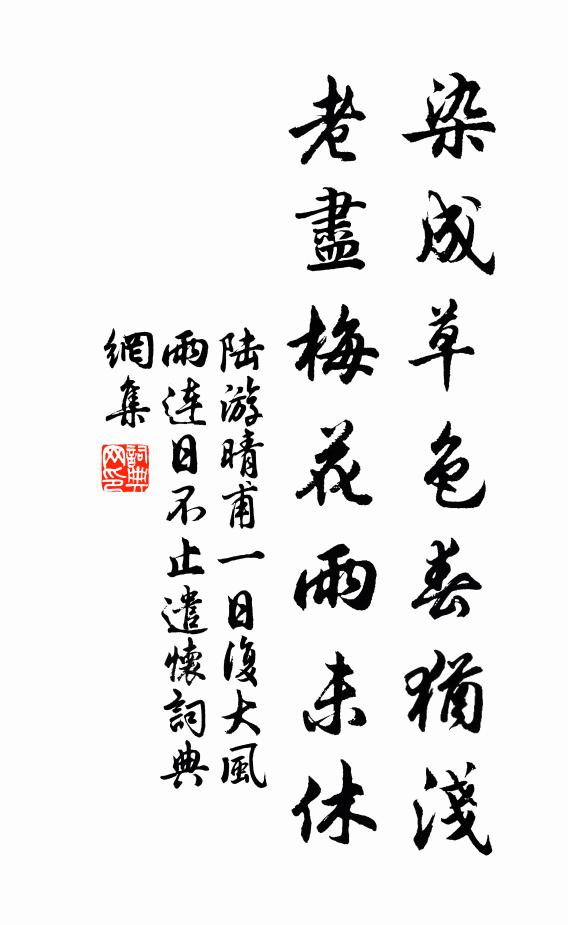 染成草色春猶淺
老盡梅花雨未休
陆游晴甫一日復大風
雨连日不止遣懷詞典
網集
詞典
网印